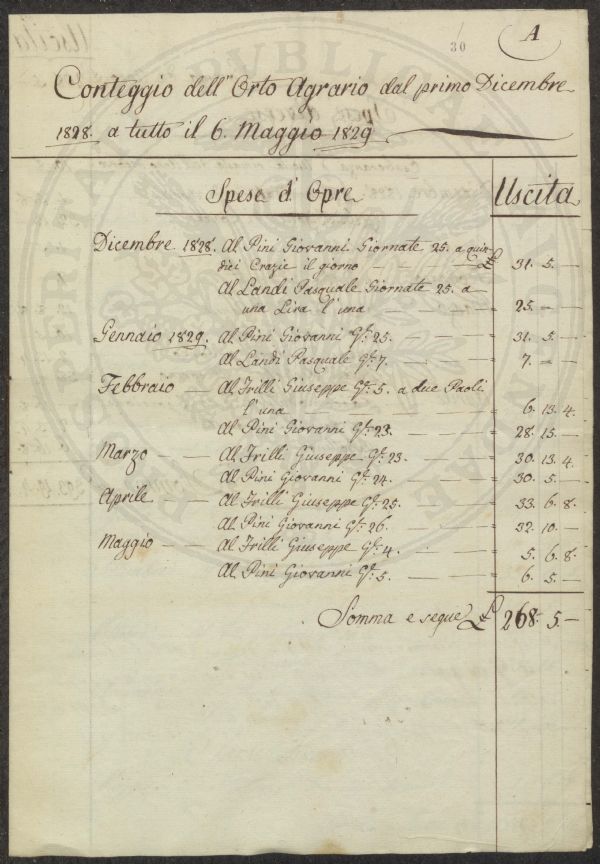 30
A
Conteggio dell' Orto Agrario dal primo Dicembre
1828. a tutto il 6. Maggio 1829
Spese d' Opre Uscita
Dicembre 1828. Al Pini Giovanni Giornate 25. a quin-
dici Crazie il giorno — — — — £ 31. 5. —
Al Landi Pasquale Giornate 25. a
una Lira l' una — — — — = 25. — —
Gennaio 1829. Al Pini Giovanni Gte. 25. — — — = 31. 5. —
Al Landi Pasquale Gte. 7. — — — = 7. — —
Febbraio — Al Trilli Giuseppe Gte. 5. a due Paoli
l' una — — — — = 6. 13. 4.
Al Pini Giovanni Gte. 23. — — — = 28. 15. —
Marzo — — Al Trilli Giuseppe Gte. 23. — — — = 30. 13. 4.
Al Pini Giovanni Gte. 24. — — — = 30. 5. —
Aprile — — Al Trilli Giuseppe Gte. 25. — — — = 33. 6. 8.
Al Pini Giovanni Gte. 26. — — — = 32. 10. —
Maggio — — Al Trilli Giuseppe Gte. 4. — — — = 5. 6. 8.
Al Pini Giovanni Gte. 5. — — — = 6. 5. —
Somma e segue £ 268. 5. —